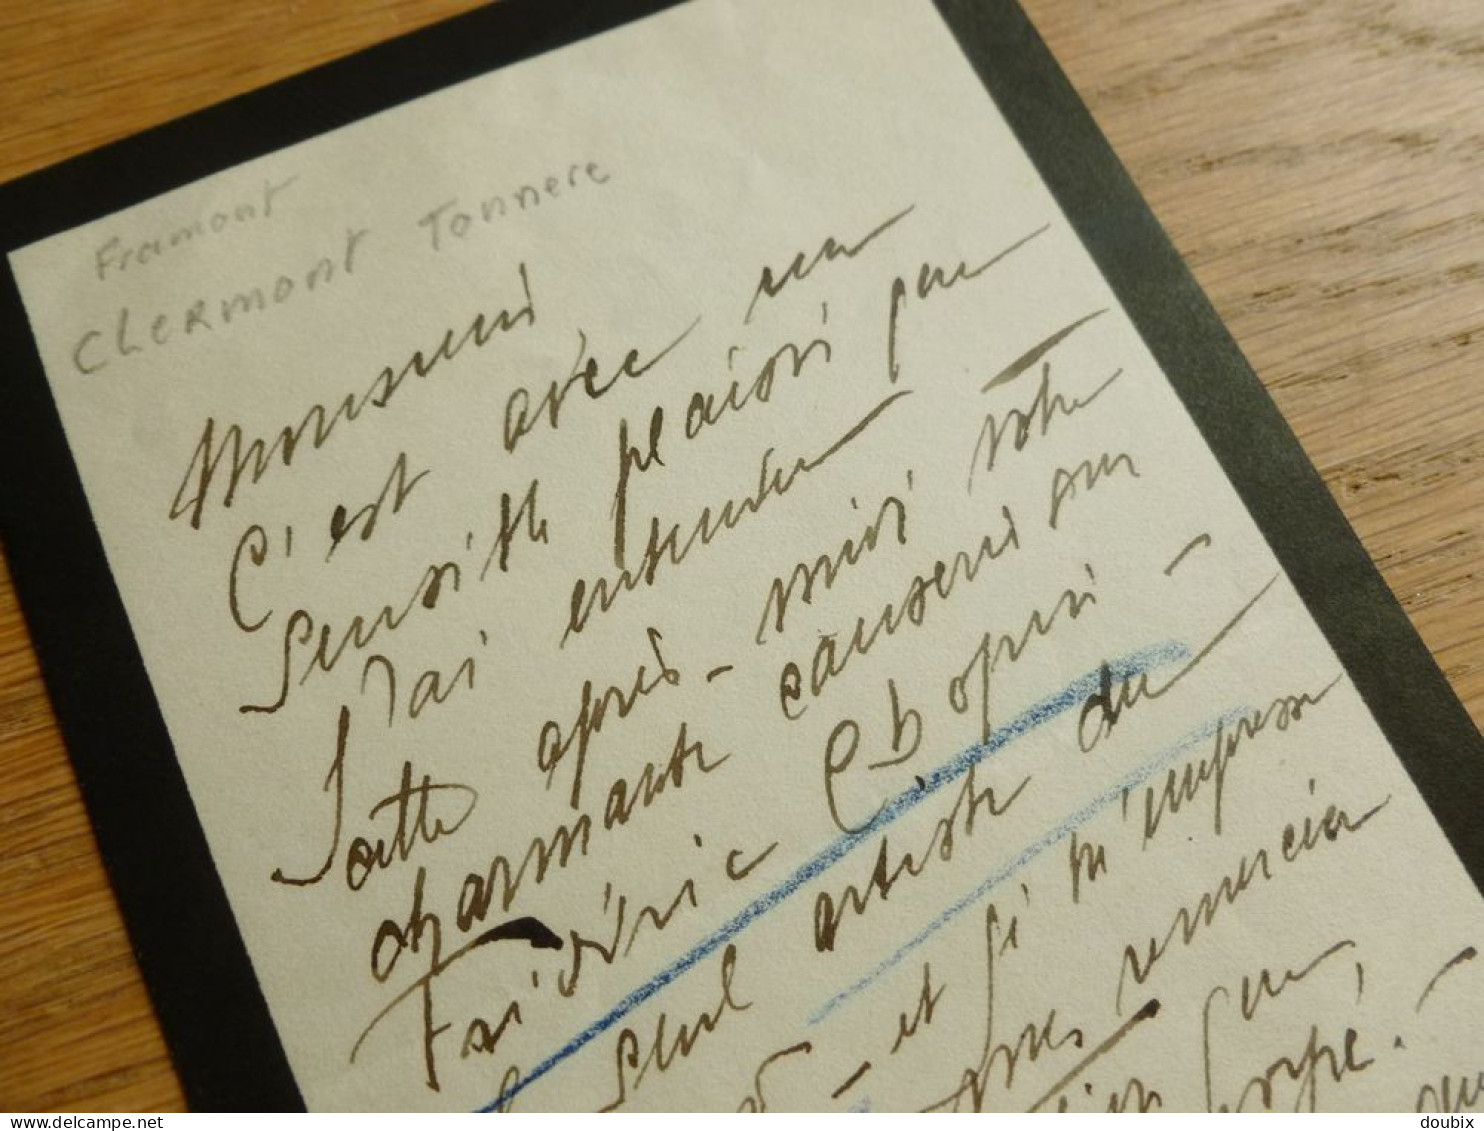 Framont
Clermont Tonnere
Monsieur
C'est avec un
sensible plaisir que
j'ai entendu
cette après-midi votre
charmante causerie sur
Frédéric Chopin -
seul artiste du
- et je m'empresse
remercier
doubix